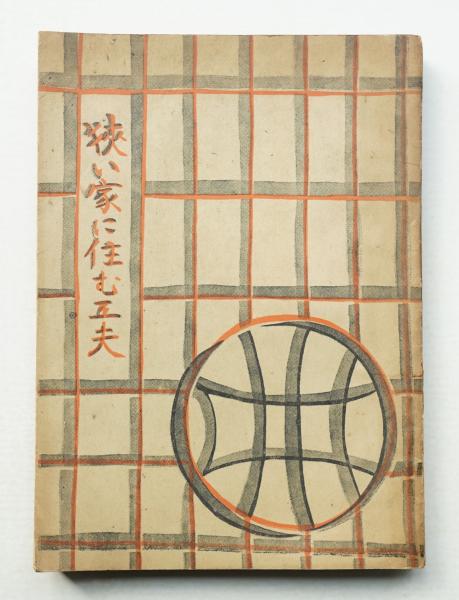 狭い家に住む工夫